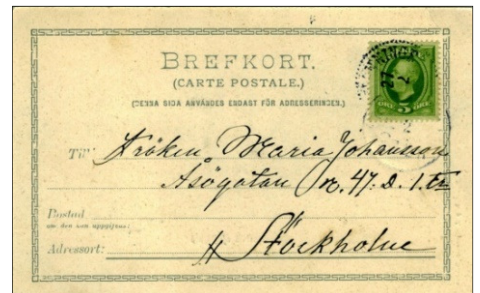 BREFKORT.
(CARTE POSTALE.)
(DENNA SIDA ANVÄNDES ENDAST FÖR ADRESSERINGEN.)
5
Till Fröken Maria Johansson
Åsögatan N. 47. d. 1. Tr
Postad
Adressort: Stockholm